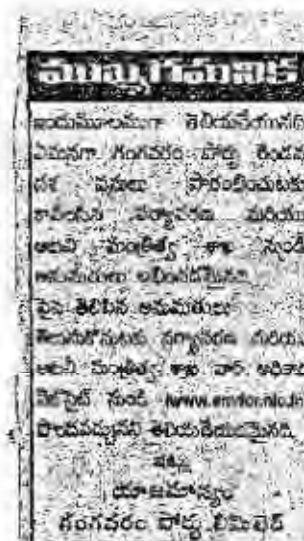 ముఖ్యగమనిక
ఇందుమూలముగా తెలియచేయునది
ఏమనగా గంగవరం పోర్టు రెండవ
దశ పనులు ప్రారంభించుటకు
కావలసిన పర్యావరణ మరియు
అటవీ మంత్రిత్వ శాఖ నుండి
అనుమతులు లభించినవి
పైన తెలిపిన అనుమతులు
తెలుసుకొనుటకు పర్యావరణ మరియు
అటవీ మంత్రిత్వ శాఖ వారి అధికారి
వెబ్‌సైట్ నుండి
పొందవచ్చునని తెలియచేయడమైనది.
ఇట్లు
యాజమాన్యం
గంగవరం పోర్టు లిమిటెడ్